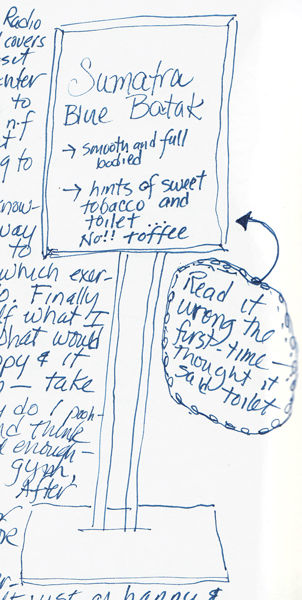 Radio
covers
Sumatra
Blue Batak
→ smooth and full
bodied
→ hints of sweet
tobacco and
toilet ...
No!! toffee
Read it
wrong the
first time —
thought it
said toilet
to
n.f
g to
know-
way
to
which exer-
o. Finally
what I
what would
py & it
take
do I pooh-
nd think
enough-
gyph,
After
just as happy &